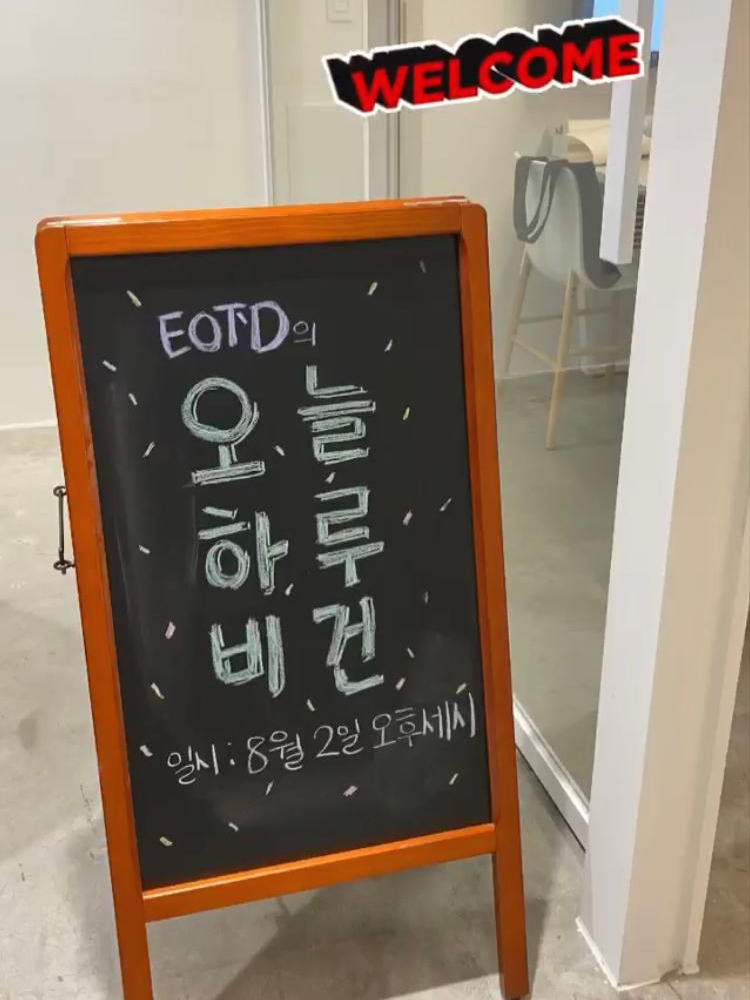 WELCOME
EOTD의
오늘
하루
비건
일시: 8월 2일 오후세시